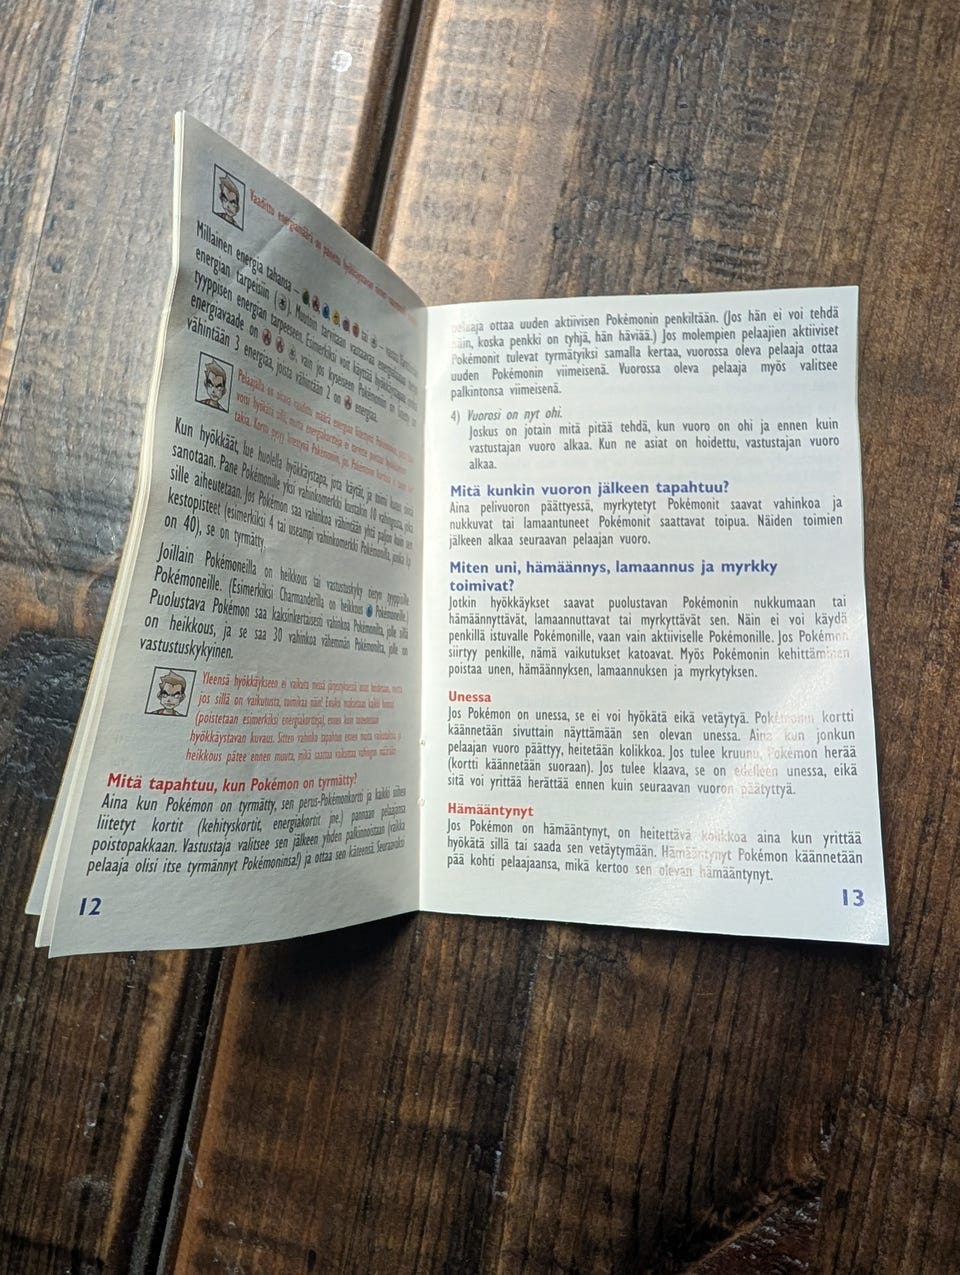 Vaadittu energiamäärä on
Millainen energia tahansa –
energian tarpeisiin ( ). Muutoin tarvitaan vastaavaa energialajia
tyyppisen energian tarpeeseen. Esimerkiksi voit käyttää hyökkäystapaa
energiavaade on , vain jos kyseiseen Pokémoniin on liitetty
vähintään 3 energiaa, joista vähintään 2 on energiaa.
Pelaajalla on oltava vaadittu määrä energiaa
voisi hyökätä sillä, mutta energiakortteja ei tarvitse poistaa hyökkäyksen
takia. Kortit pysyy
Kun hyökkäät, lue huolella hyökkäystapa, jota käytät, ja toimi kuten siinä
sanotaan. Pane Pokémonille yksi vahinkomerkki kustakin 10 vahingosta, joka
sille aiheutetaan. Jos Pokémon saa vahinkoa vähintään yhtä paljon kuin sen
kestopisteet (esimerkiksi 4 tai useampi vahinkomerkki Pokémonilla, jonka
on 40), se on tyrmätty.
Joillain Pokémoneilla on heikkous tai vastustuskyky tietyn tyyppisille
Pokémoneille. (Esimerkiksi Charmanderilla on heikkous Pokémoneille.)
Puolustava Pokémon saa kaksinkertaisesti vahinkoa Pokémonilta, jolle sillä
on heikkous, ja se saa 30 vahinkoa vähemmän Pokémonilta, jolle se on
vastustuskykyinen.
Yleensä hyökkäykseen ei vaikuta missä järjestyksessä asiat hoidetaan, mutta
jos sillä on vaikutusta, toimikaa näin: Ensiksi maksetaan kaikki hinnat
(poistetaan esimerkiksi energiakortteja), ennen kuin toteutetaan
hyökkäystavan kuvaus. Sitten vahinko tapahtuu ennen muita vaikutuksia ja
heikkous pätee ennen muuta, mikä saattaa vaikuttaa vahingon määrään.
Mitä tapahtuu, kun Pokémon on tyrmätty?
Aina kun Pokémon on tyrmätty, sen perus-Pokémonkortti ja kaikki siihen
liitetyt kortit (kehityskortit, energiakortit jne.) pannaan pelaajansa
poistopakkaan. Vastustaja valitsee sen jälkeen yhden palkinnoistaan (vaikka
pelaaja olisi itse tyrmännyt Pokémoninsa!) ja ottaa sen käteensä. Seuraavaksi
12
pelaaja ottaa uuden aktiivisen Pokémonin penkiltään. (Jos hän ei voi tehdä
näin, koska penkki on tyhjä, hän häviää.) Jos molempien pelaajien aktiiviset
Pokémonit tulevat tyrmätyiksi samalla kertaa, vuorossa oleva pelaaja ottaa
uuden Pokémonin viimeisenä. Vuorossa oleva pelaaja myös valitsee
palkintonsa viimeisenä.
4) Vuorosi on nyt ohi.
Joskus on jotain mitä pitää tehdä, kun vuoro on ohi ja ennen kuin
vastustajan vuoro alkaa. Kun ne asiat on hoidettu, vastustajan vuoro
alkaa.
Mitä kunkin vuoron jälkeen tapahtuu?
Aina pelivuoron päättyessä, myrkytetyt Pokémonit saavat vahinkoa ja
nukkuvat tai lamaantuneet Pokémonit saattavat toipua. Näiden toimien
jälkeen alkaa seuraavan pelaajan vuoro.
Miten uni, hämäännys, lamaannus ja myrkky
toimivat?
Jotkin hyökkäykset saavat puolustavan Pokémonin nukkumaan tai
hämäännyttävät, lamaannuttavat tai myrkyttävät sen. Näin ei voi käydä
penkillä istuvalle Pokémonille, vaan vain aktiiviselle Pokémonille. Jos Pokémon
siirtyy penkille, nämä vaikutukset katoavat. Myös Pokémonin kehittäminen
poistaa unen, hämäännyksen, lamaannuksen ja myrkytyksen.
Unessa
Jos Pokémon on unessa, se ei voi hyökätä eikä vetäytyä. Pokémonin kortti
käännetään sivuttain näyttämään sen olevan unessa. Aina kun jonkun
pelaajan vuoro päättyy, heitetään kolikkoa. Jos tulee kruunu, Pokémon herää
(kortti käännetään suoraan). Jos tulee klaava, se on edelleen unessa, eikä
sitä voi yrittää herättää ennen kuin seuraavan vuoron päätyttyä.
Hämääntynyt
Jos Pokémon on hämääntynyt, on heitettävä kolikkoa aina kun yrittää
hyökätä sillä tai saada sen vetäytymään. Hämääntynyt Pokémon käännetään
pää kohti pelaajaansa, mikä kertoo sen olevan hämääntynyt.
13